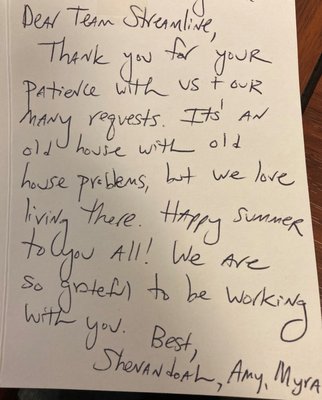 Dear Team Streamline,
Thank you for your
patience with us + our
many requests. Its' an
old house with old
house problems, but we love
living there. Happy Summer
to you all! We are
so grateful to be working
with you.
Best,
Shenandoah, Amy, Myra